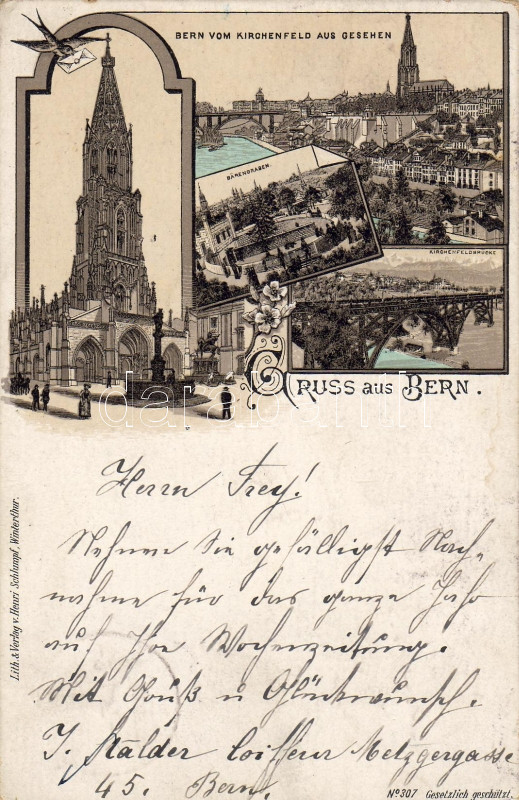 BERN VOM KIRCHENFELD AUS GESEHEN
BÄRENGRABEN.
KIRCHENFELDBRÜCKE
GRUSS AUS BERN.
darabanth
Herrn Frey!
Nehmen Sie gefälligst Nach-
nahme für das ganze Jahr
auf Ihre Wochenzeitung.
Mit Gruß u Glückwunsch.
J. Stalder Coiffeur Metzgergasse
45. Bern.
Lith. & Verlag v. Henri Schlumpf, Winterthur.
No 307 Gesetzlich geschützt.